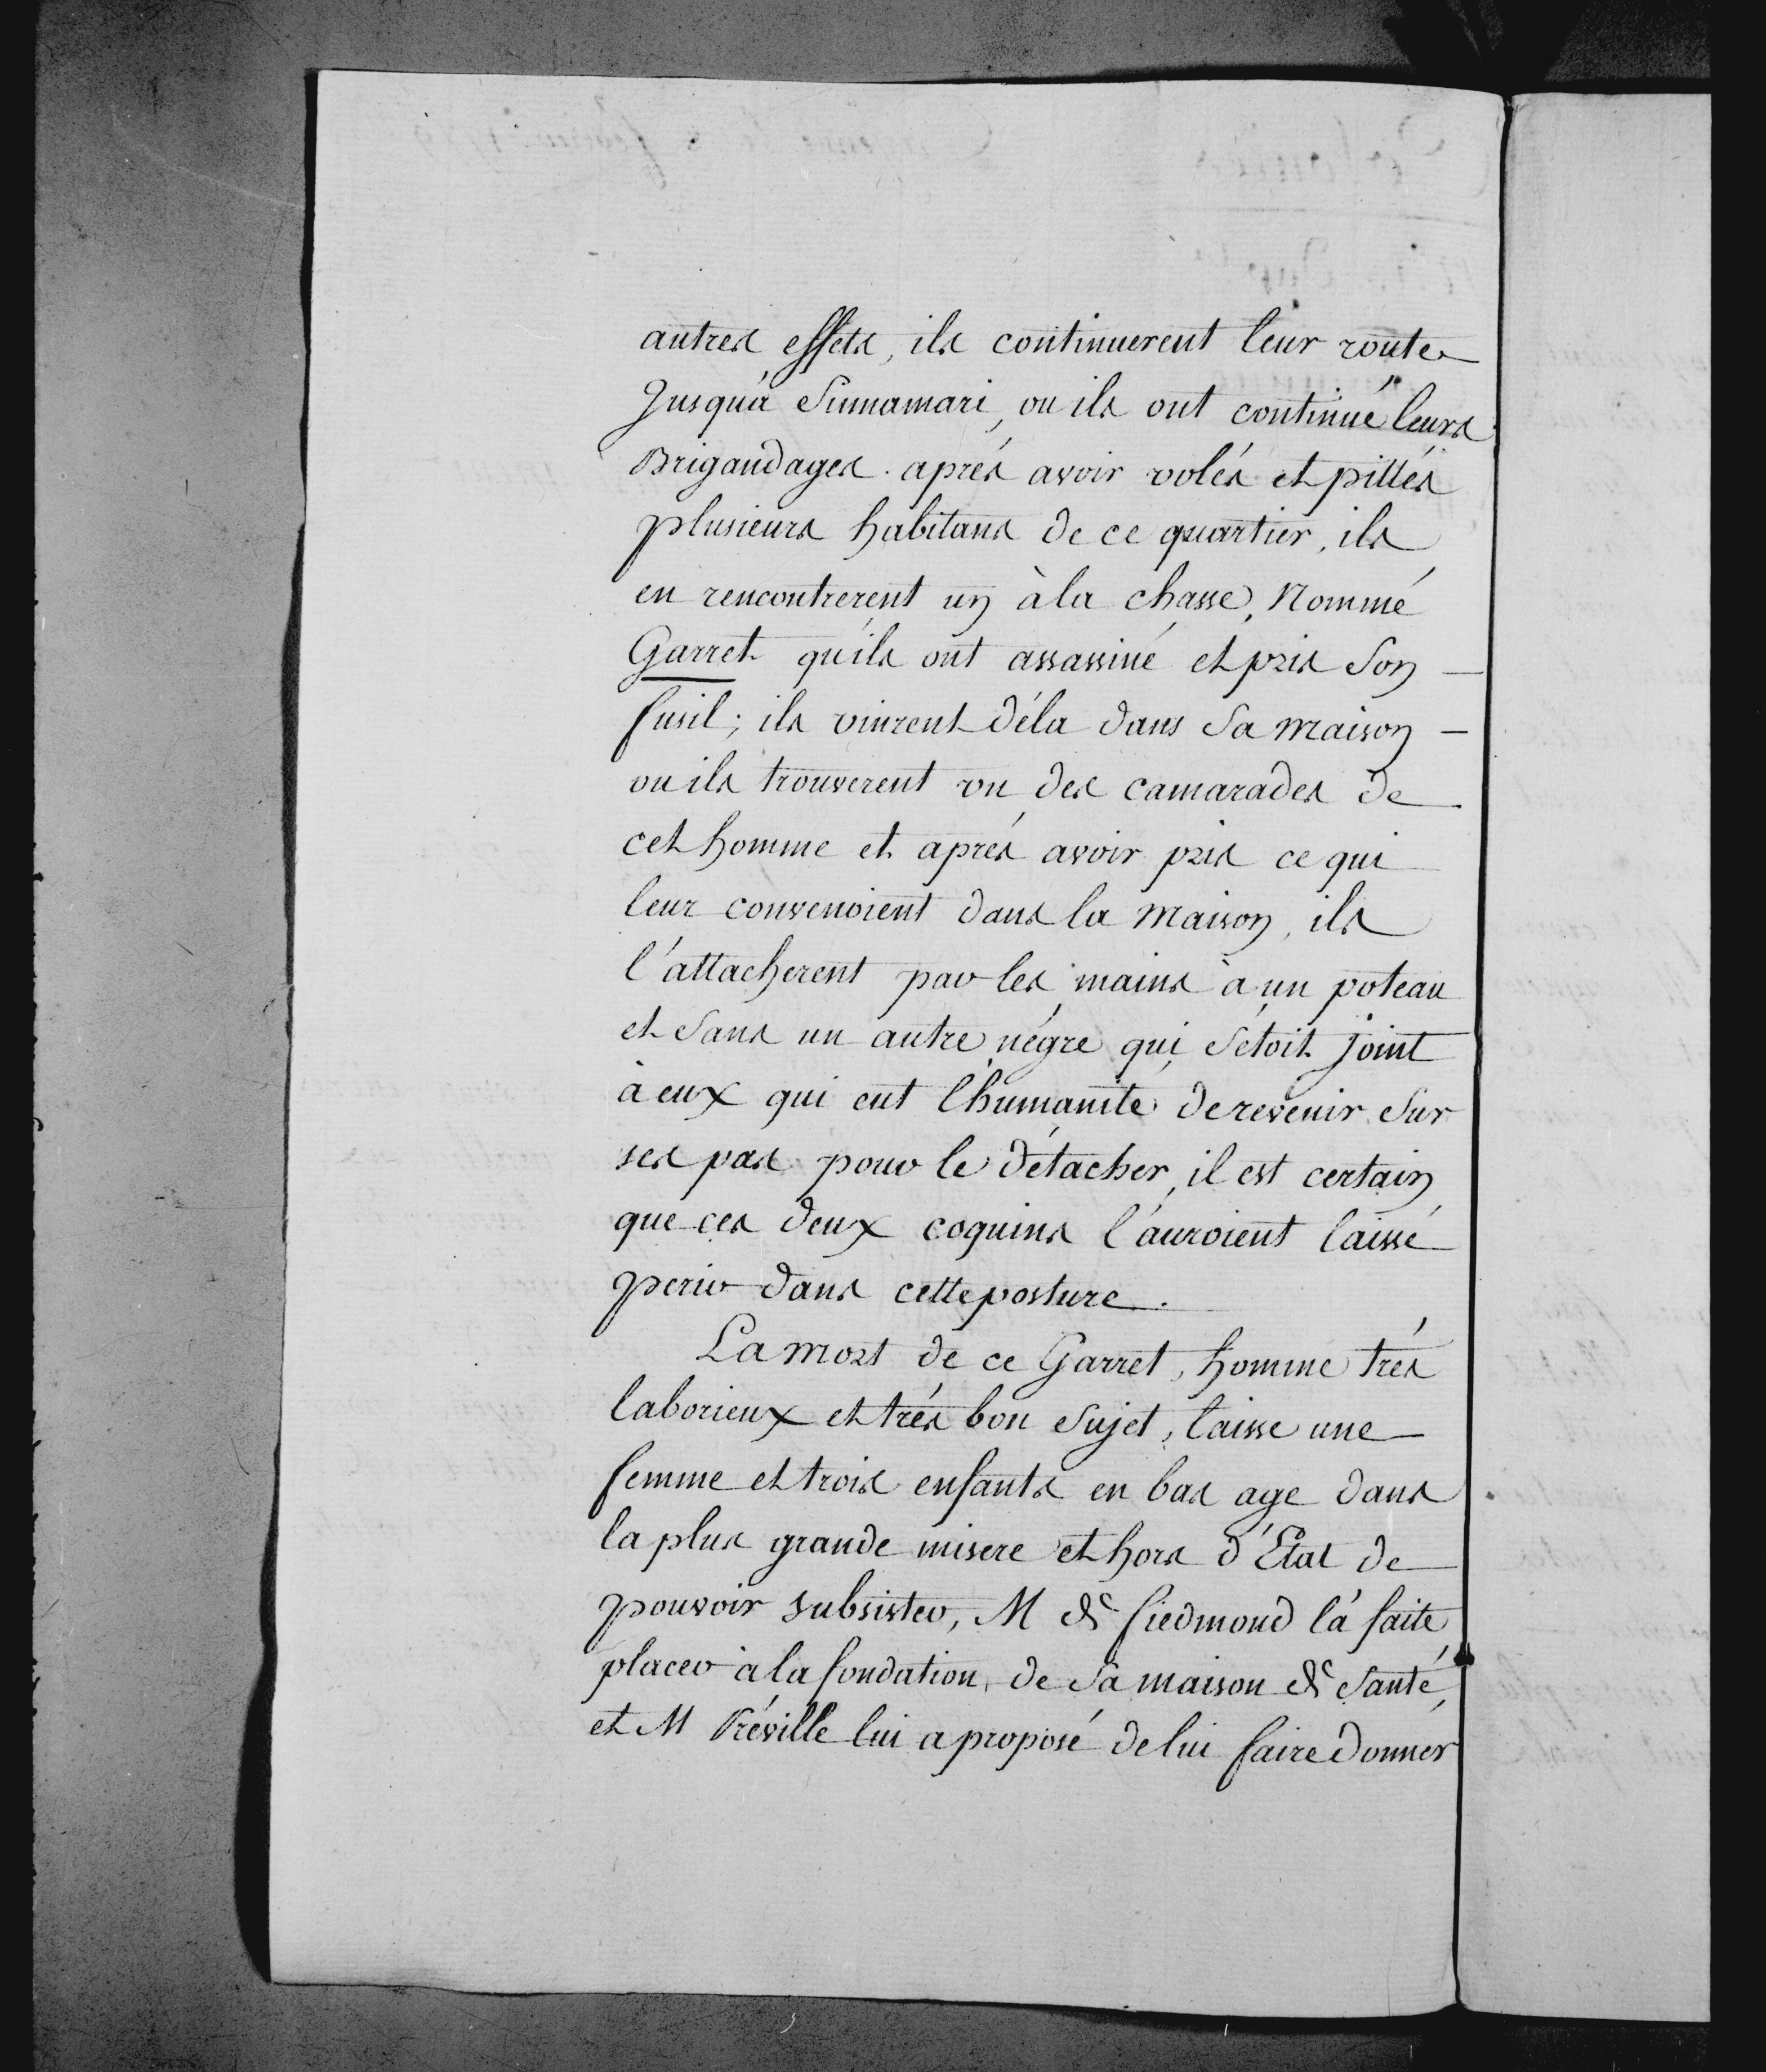 autres effets, ils continuerent leur route
Jusqu'à Sinnamari, ou ils ont continué leurs
Brigandages. aprés avoir volés et pillés
plusieurs habitans de ce quartier, ils
en rencontrerent un à la chasse, Nommé
Garret qu'ils ont assassiné et pris Son
fusil; ils vinrent déla dans Sa maison
ou ils trouverent un des camarades de
cet homme et aprés avoir pris ce qui
leur convenoient dans la maison, ils
l'attacherent par les mains à un poteau
et Sans un autre négre qui S'étoit Joint
à eux qui eut l'humanité de revenir Sur
ses pas pour le détacher, il est certain
que ces deux coquins l'auroient laissé
perir dans cette posture.
La mort de ce Garret, homme trés
laborieux et trés bon Sujet, laisse une
femme et trois enfants en bas age dans
la plus grande misere et hors d'Etat de
pouvoir subsister, M de fiedmond l'a faite
placer à la fondation, de Sa maison de Santé,
et M Préville lui a proposé de lui faire donner